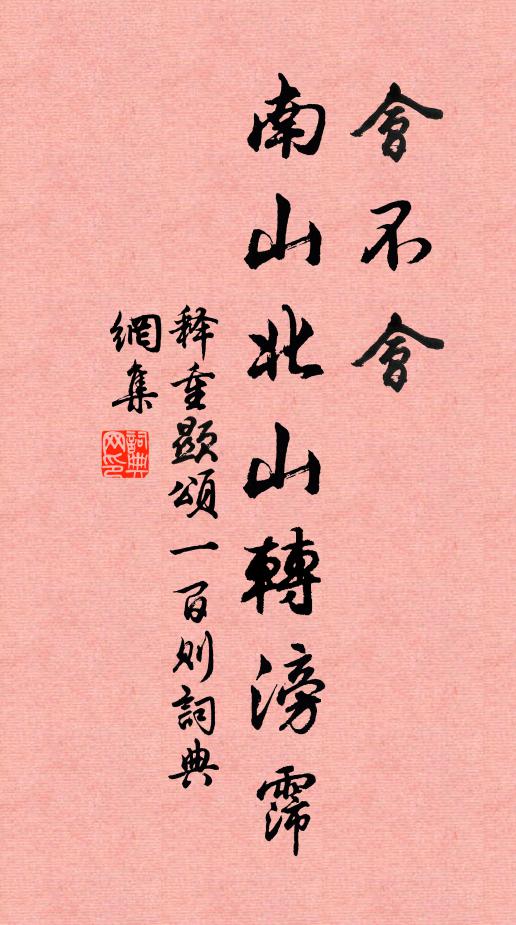 會不會
南山北山轉滂霈
释重顯頌一百則詞典
網集
詞典網印